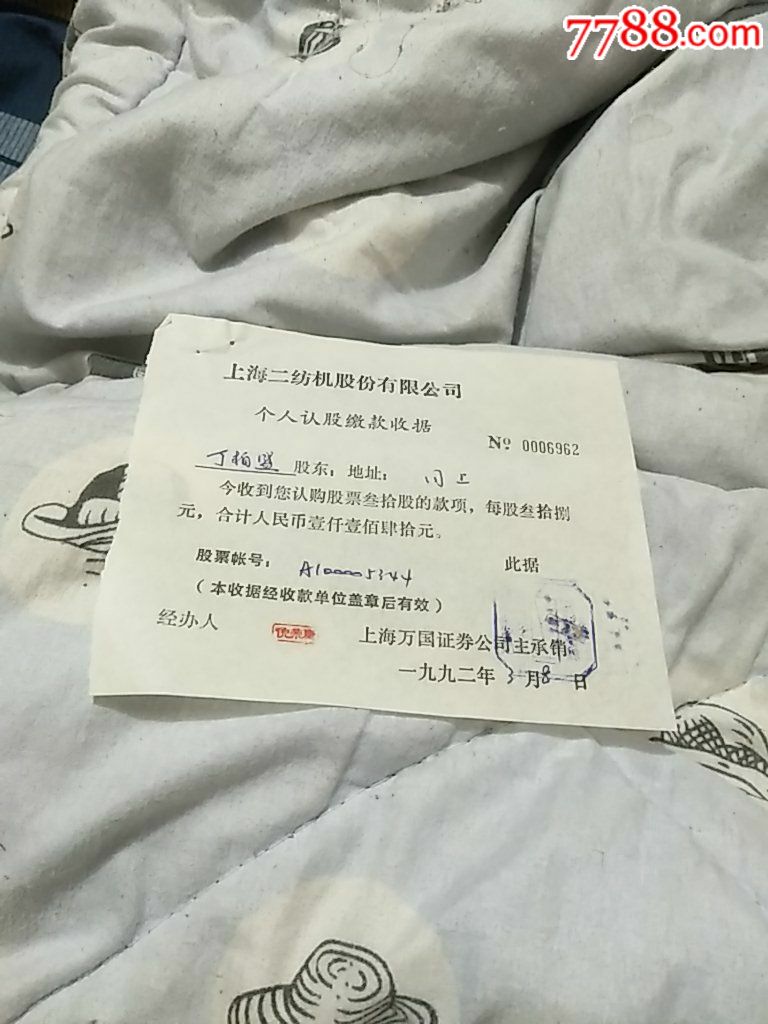 7788.com
上海二纺机股份有限公司
个人认股缴款收据
№ 0006962
丁柏 股东：地址： 同上
今收到您认购股票叁拾股的款项，每股叁拾捌
元，合计人民币壹仟壹佰肆拾元。
股票帐号： A100005344 此据
（本收据经收款单位盖章后有效）
经办人 上海万国证券公司主承销
一九九二年 3 月 8 日